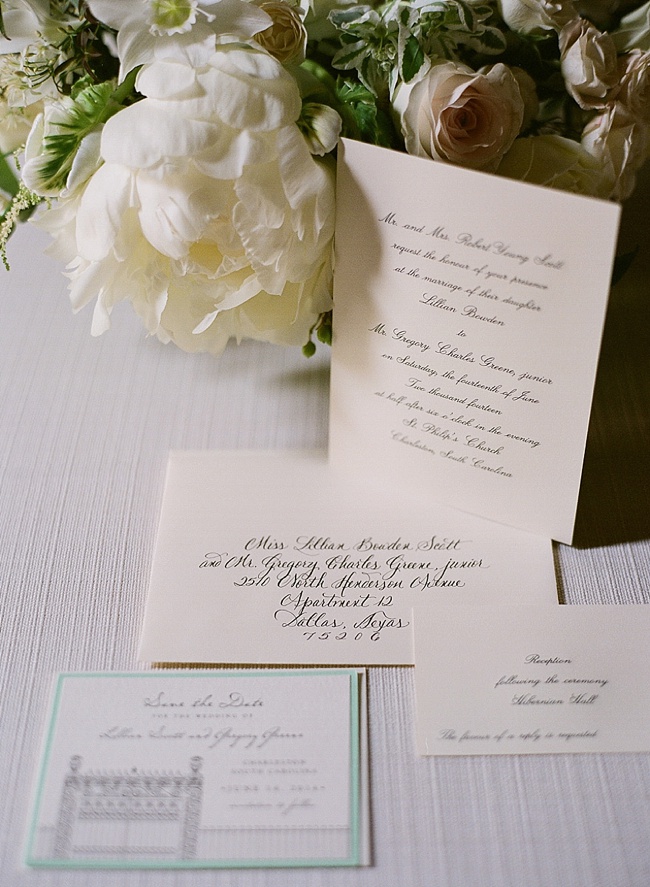 Mr. and Mrs. Robert Young Scott
request the honour of your presence
at the marriage of their daughter
Lillian Bowden
to
Mr. Gregory Charles Greene, junior
on Saturday, the fourteenth of June
Two thousand fourteen
at half after six o'clock in the evening
St. Philip's Church
Charleston, South Carolina
Miss Lillian Bowden Scott
and Mr. Gregory Charles Greene, junior
2510 North Henderson Avenue
Apartment 12
Dallas, Texas
75206
Reception
following the ceremony
Hibernian Hall
The favour of a reply is requested
Save the Date
FOR THE WEDDING OF
Lillian Scott and Gregory Greene
CHARLESTON
SOUTH CAROLINA
JUNE 14, 2014
invitation to follow